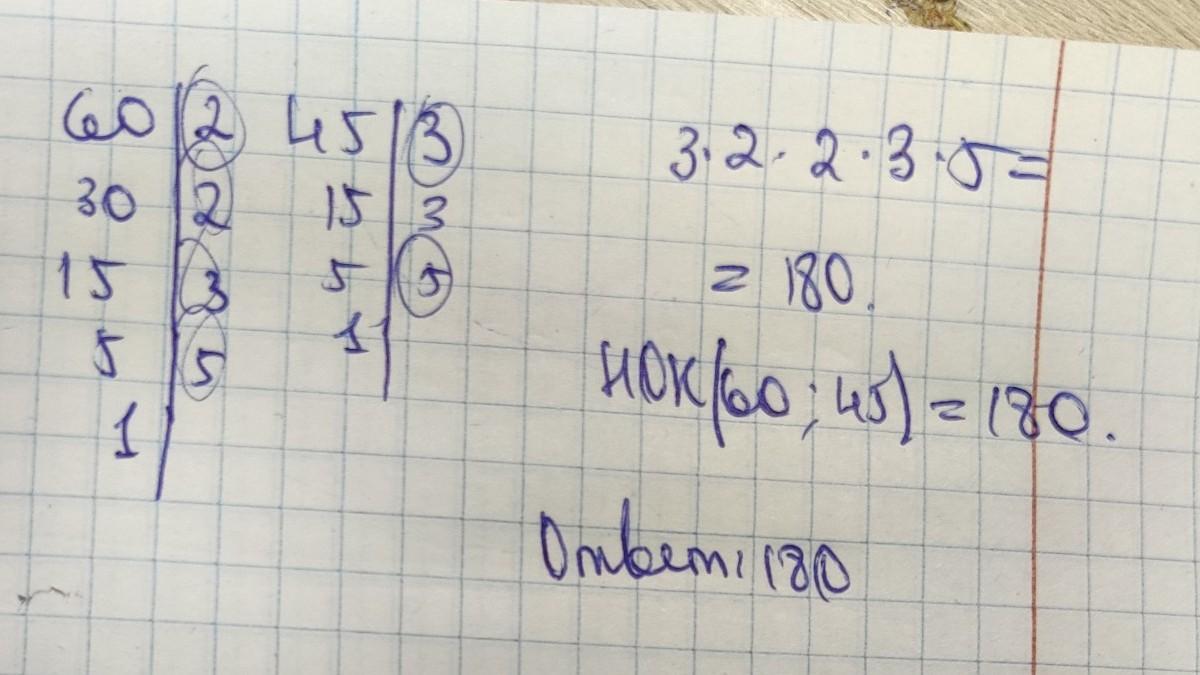 60 | 2 45 | 3
30 | 2 15 | 3
15 | 3 5 | 5
5 | 5 1
1
3·2·2·3·5=
= 180.
НОК(60;45)=180.
Ответ: 180